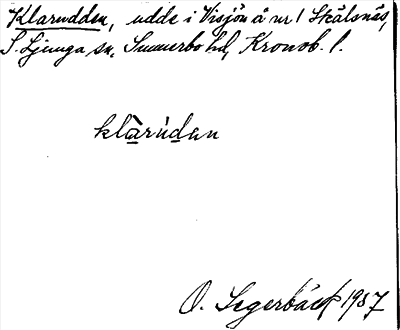 Klarudden, udde i Visjön å nr 1 Skälsnäs,
S. Ljunga sn. Sunnerbo hd, Kronob. l.
klàrúdan
O. Segerbäck 1987